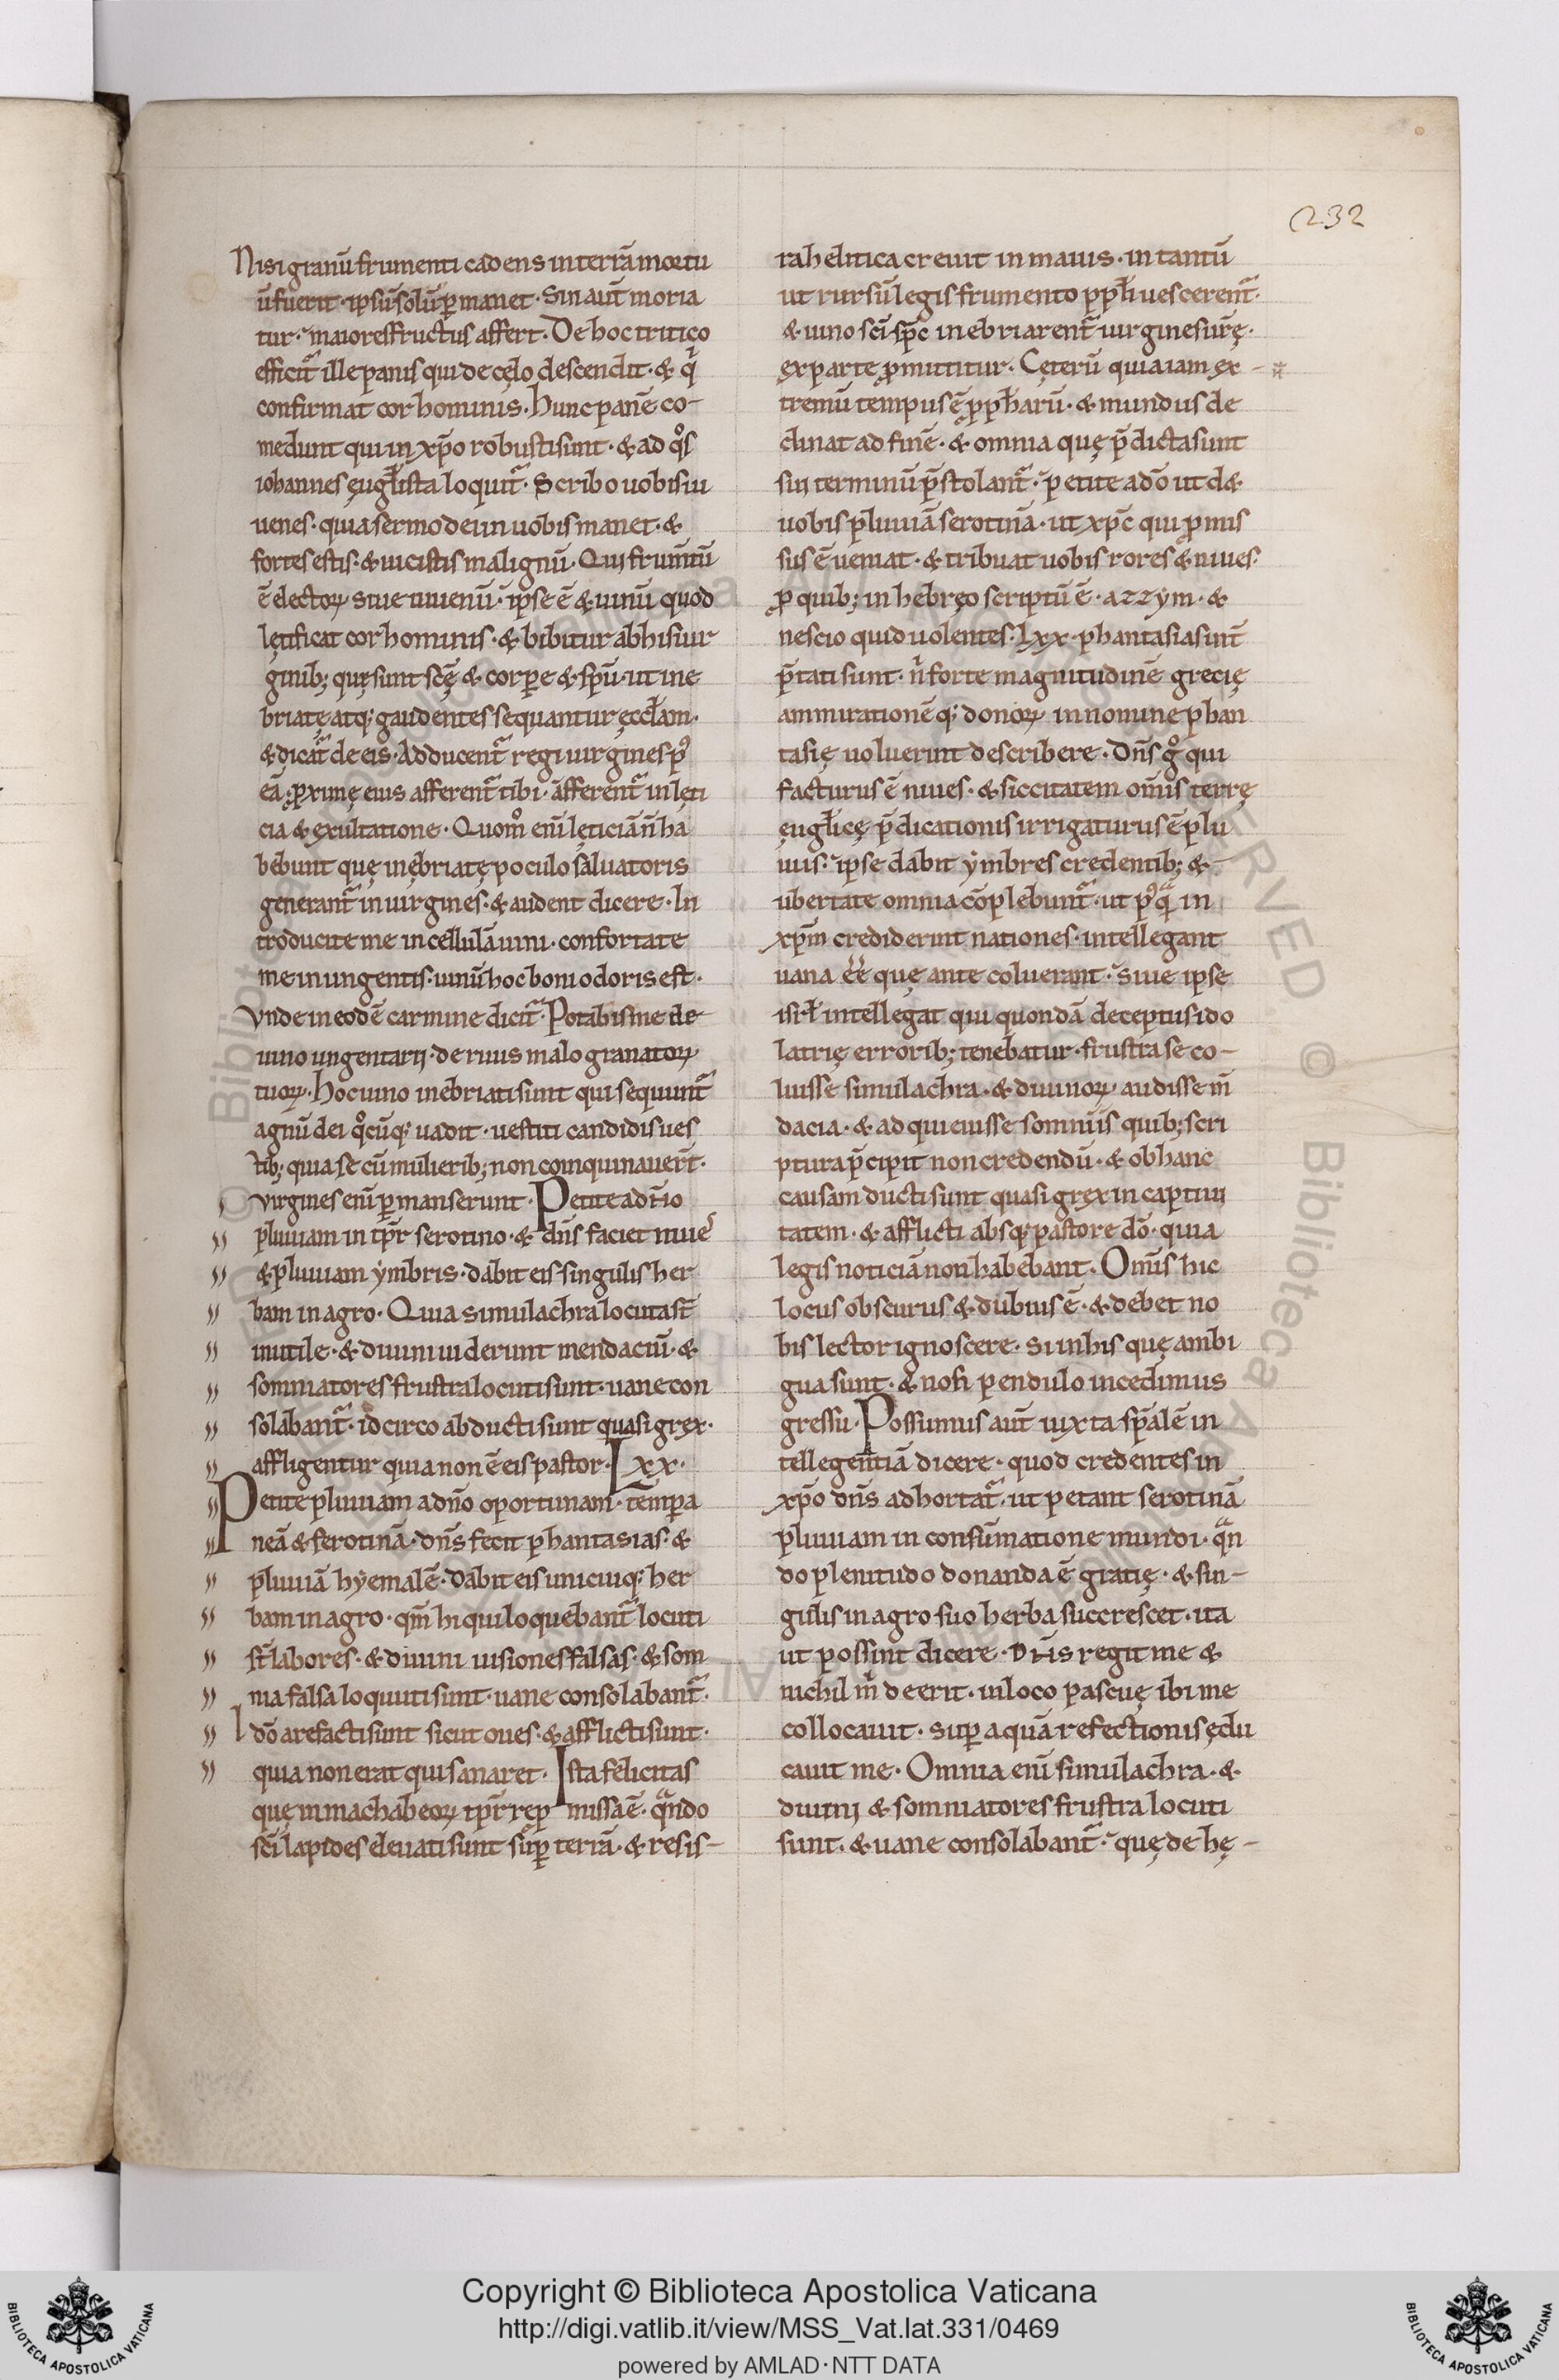 232
Nisi granū frumenti cadens in terrā mortu
ū fuerit · ipsū solū ꝑmanet · Sin aut̄ moria
tur · maiores fructus affert · De hoc tritico
efficit᷑ ille panis qui de cęlo descendit · & q̇
confirmat cor hominis · Hunc panē co-
medunt qui in xp̄o robusti sunt · & ad qͦs
iohannes ęuglista loquit᷑ · Scribo uobis iu
uenes · quia sermo dei in uobis manet · &
fortes estis · & uicistis malignū · Qui frum̄tū
ē electoꝝ siue iuuenū · ipse ē & uinū quod
lętificat cor hominis · & bibitur ab his uir
ginib; quę sunt scē & corꝑe & sp̄u · ut ine
briatę atq; gaudentes sequantur ęccłam ·
& dicat᷑ de eis · Adducent᷑ regi uirgines p᷒
eā · ꝓximę eius afferent᷑ tibi · afferent᷑ in lęti
cia & exultatione · Quom̊ eni lęticiā n̄ ha
bebunt quę inębriatę poculo saluatoris
generant᷑ in uirgines · & audent dicere · In
troducite me in cellulā uini · confortate
me in ungentis · uinū hoc boni odoris est ·
Vnde in eodē carmine dicit᷑ · Potabis me de
uino ungentarii · de riuis malo granatoꝝ
tuoꝝ · Hoc uino inebriati sunt qui sequunt᷑
agnū dei qͦcūq; uadit · uestiti candidis ues
tib; quia se cū mulierib; non coinquinauer̄t ·
Virgines eni ꝑmanserunt · Petite a dn̄o
pluuiam in tp̄r serotino · & dn̄s faciet niue᷒
& pluuiam ẏmbris · dabit eis singulis her
bam in agro · Quia simulachra locuta st̄
inutile · & diuini uiderunt mendaciū · &
somniatores frustra locuti sunt · uane con
solabant᷑ · idcirco abducti sunt quasi grex ·
affligentur quia non ē eis pastor · Lxx ·
Petite pluuiam a dn̄o oportunam · tem̄pa
neā & serotinā · dn̄s fecit phantasias · &
pluuiā hẏemalē · dabit eis unicuiq; her
bam in agro · qm̄ hi qui loquebant᷑ locuti
st̄ labores · & diuini uisiones falsas · & som
nia falsa loquuti sunt · uane consolabant᷑ ·
Idō arefacti sunt sicut oues · & afflicti sunt ·
quia non erat qui sanaret · Ista felicitas
quę in machabeoꝝ tp̄r rep missa ē · qᷓndo
scī lapides eleuati sunt suꝑ terrā · & resis-
rahelitica creuit in maius · in tantū
ut rursū legis frumento ppłi uescerent᷑ ·
& uino scī sp̄c inebriarent᷑ uirgines iurę ·
ex parte ꝓmittitur · Cęterū quia iam ex-
tremū tempus ē ꝓpħarū · & mundus de
clinat ad finē · & omnia quę p̄dicta sunt
sui terminū p̄stolant᷑ · petite a dō ut d&
uobis pluuiā serotinā · ut xp̄c qui ꝓmis
sus ē ueniat · & tribuat uobis rores & niues ·
ꝓ quib; in hebręo scriptū ē · azzẏm · &
nescio quid uolentes · Lxx · phantasias int̄
p̄tati sunt · n̊ forte magnitudinē grecię
ammirationēq; donoꝝ in nomine phan
tasię uoluerint describere · Dn̄s g̊ qui
facturus ē niues · & siccitatem om̄is terrę
ęuglicę p̄dicationis irrigaturus ē plu
uiis · ipse dabit ẏmbres credentib; &-
ubertate omnia cōplebunt᷑ · ut p᷒qᷓ in
xp̄m crediderint nationes · intellegant
uana ee᷒ quę ante coluerant · Siue ipse
isrł intellegat qui quondā deceptus ido
latrię errorib; tenebatur · frustra se co-
luisse simulachra · & diuinoꝝ audisse m̄
dacia · & adquieuisse somniis quib; scri
ptura p̄cipit non credendū · & ob hanc
causam ducti sunt quasi grex in captiui
tatem · & afflicti absq; pastore dō · quia
legis noticiā non habebant · Om̄is hic
locus obscurus & dubius ē · & debet no
bis lector ignoscere · si in his quę ambi
gua sunt · & nos pendulo incedimus
gressu · Possumus aut̄ iuxta sp̄alē in
tellegentiā dicere · quod credentes in
xp̄o dn̄s adhortat᷑ · ut petant serotinā
pluuiam in consūmatione mundi · qᷓn
do plenitudo donanda ē gratię · & sin-
gulis in agro suo herba succrescet · ita
ut possint dicere · Dn̄s regit me &
nichil m̊ deerit · in loco pascuę ibi me
collocauit · suꝑ aquā refectionis ędu
cauit me · Omnia eni simulachra · &
diuini & somniatores frustra locuti
sunt · & uane consolabant᷑ · quę de hę-
© Biblioteca Apostolica Vaticana
Copyright © Biblioteca Apostolica Vaticana
http://digi.vatlib.it/view/MSS_Vat.lat.331/0469
powered by AMLAD · NTT DATA
BIBLIOTECA APOSTOLICA VATICANA
BIBLIOTECA APOSTOLICA VATICANA